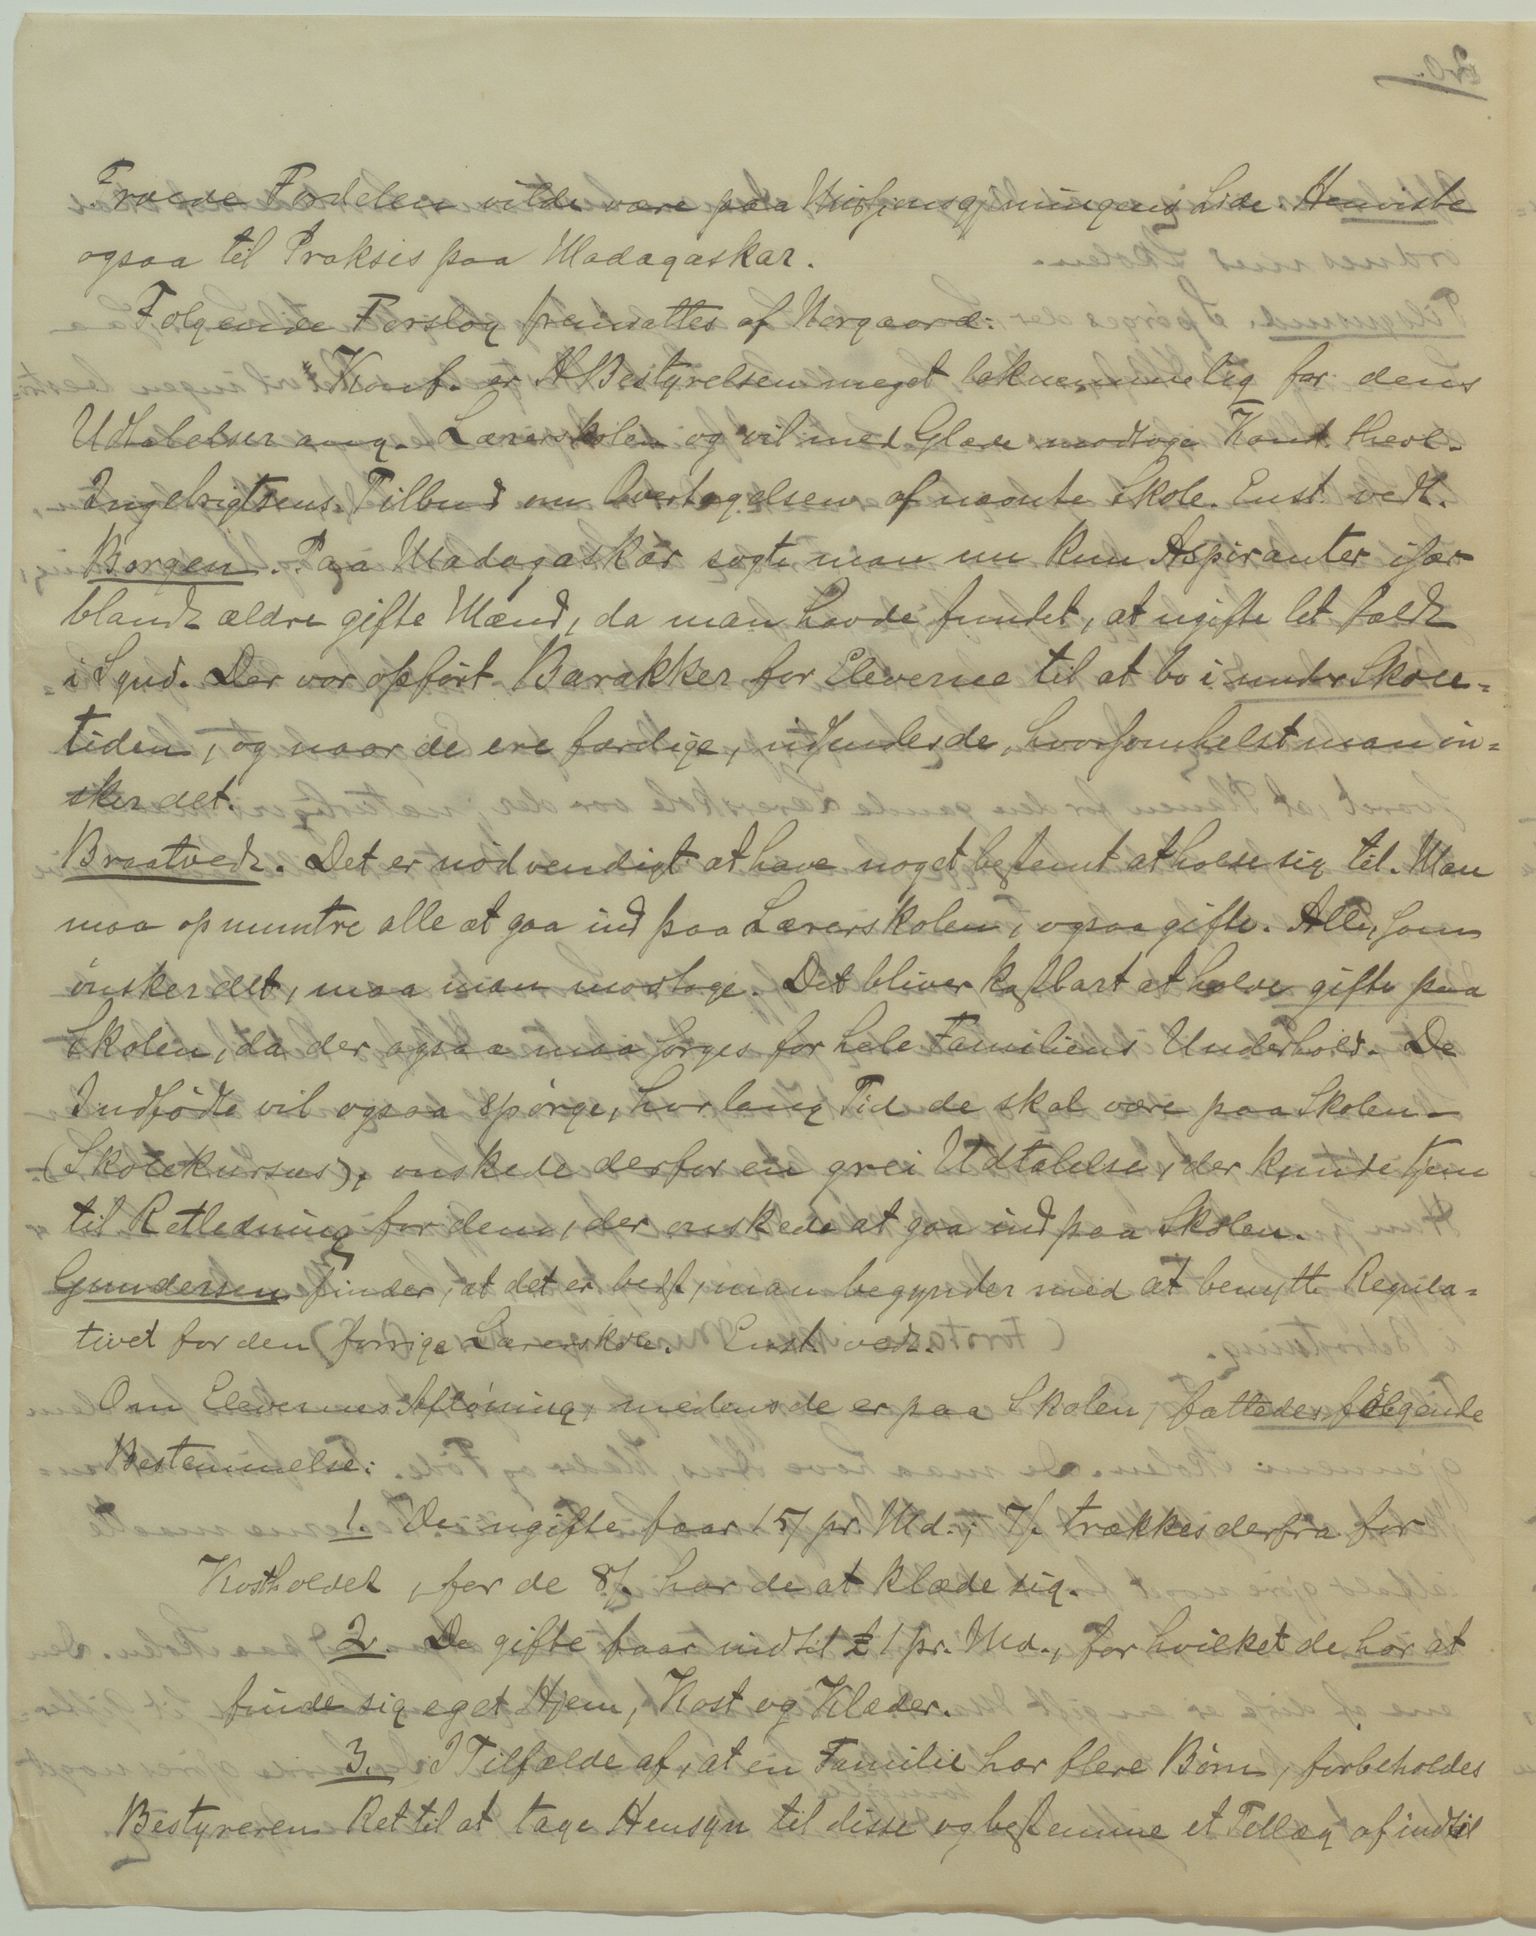 troede Fordelen vilde være paa Missionsgjerningens Side. Henviste
ogsaa til Praksis paa Madagaskar.
Følgende Forslag fremsattes af Norgaard:
"Konf. er H Bestyrelsen meget taknemmelig for dens
Udtalelser ang. Lærerskolen og vil med Glæde modtage Kand. theol.
Ingebrigtsens Tilbud om Overtagelsen af nævnte Skole. Enst. vedt.
Borgen. Paa Madagaskar søgte man nu kun Aspiranter især
blandt ældre gifte Mænd, da man havde fundet, at ugifte let faldt
i Synd. Der var opført Barakker for Eleverne til at bo i under Skole-
tiden, og naar de ere færdige, udsendes de, hvorsomhelst man øn-
sker det.
Braatvedt. Det er nødvendigt at have noget bestemt at holde sig til. Man
maa opmuntre alle at gaa ind paa Lærerskolen, ogsaa gifte. Alle, som
ønsker det, maa man modtage. Det bliver kostbart at have gifte paa
Skolen, da der ogsaa maa sørges for hele Familiens Underhold. De
Indfødte vil ogsaa spørge, hvor lang Tid de skal være paa Skolen
(Skolekursus), ønskede derfor en grei Udtalelse, der kunde tjene
til Retledning for dem, der ønskede at gaa ind paa Skolen.
Gundersen finder, at det er bedst, man begynder med at benytte Regula-
tivet for den forrige Lærerskole. Enst. vedt.
Om Elevernes Aflønning, medens de er paa Skolen, fattedes følgende
Bestemmelse:
1. De ugifte faar 15/ pr. Md.; 7/. trækkes derfra for
Kostholdet, for de 8/. har de at klæde sig.
2. De gifte faar indtil £ 1 pr. Md., for hvilket de har at
finde sig eget Hjem, Kost og Klæder.
3. I Tilfælde af, at en Familie har flere Børn, forbeholdes
Bestyreren Ret til at tage Hensyn til disse og bestemme et Tillæg af indtil